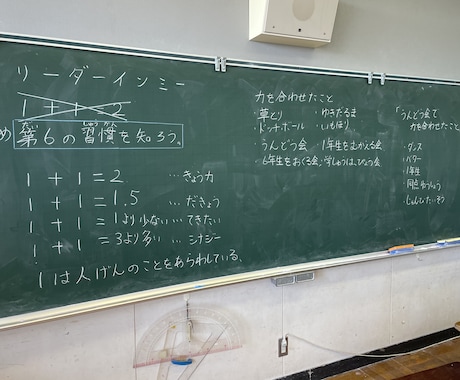 リーダーインミー
1 + 1 = 2
め 第6の習慣を知ろう。
だい しゅう かん
1 + 1 = 2 … きょう力
1 + 1 = 1.5 … だきょう
1 + 1 = 1より少ない … てきたい
1 + 1 = 3より多い … シナジー
1は人げんのことをあらわしている。
力を合わせたこと
・草とり ・ゆきだるま
・ドッチボール ・いもほり
・うんどう会 ・1年生をむかえる会
・6年生をおくる会 ・学しゅうはっぴょう会
「うんどう会で
力を合わせたこと」
・ダンス
・1年生
・じゅんびたいそう